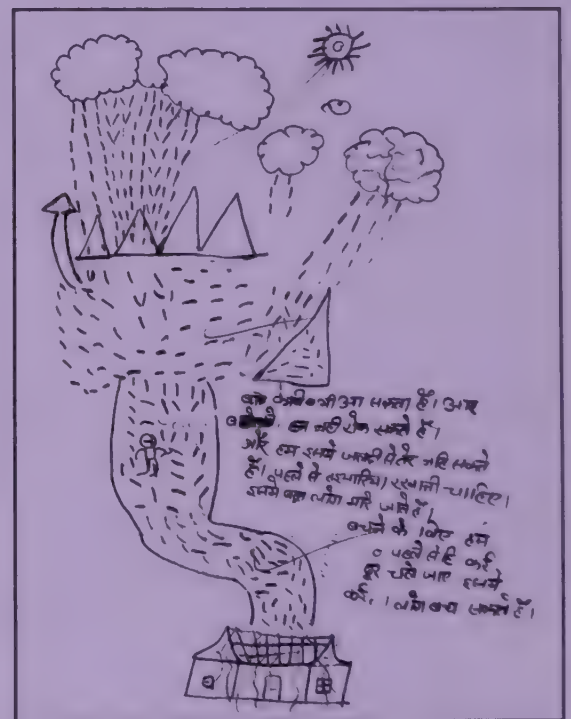 बाढ़ कभी भी आ सकता है। आप
हम नहीं रोक सकते हैं।
और हम इसमें जल्दी से तैर नहि सकते
हैं। पहले से तइयारिया रखनी चाहिए।
इसमें बहुत लोग मारे जाते हैं।
बचने के लिए हम
पहले से हि कई
दूर चले जाए इसमें
कई लोग बच सकते हैं।